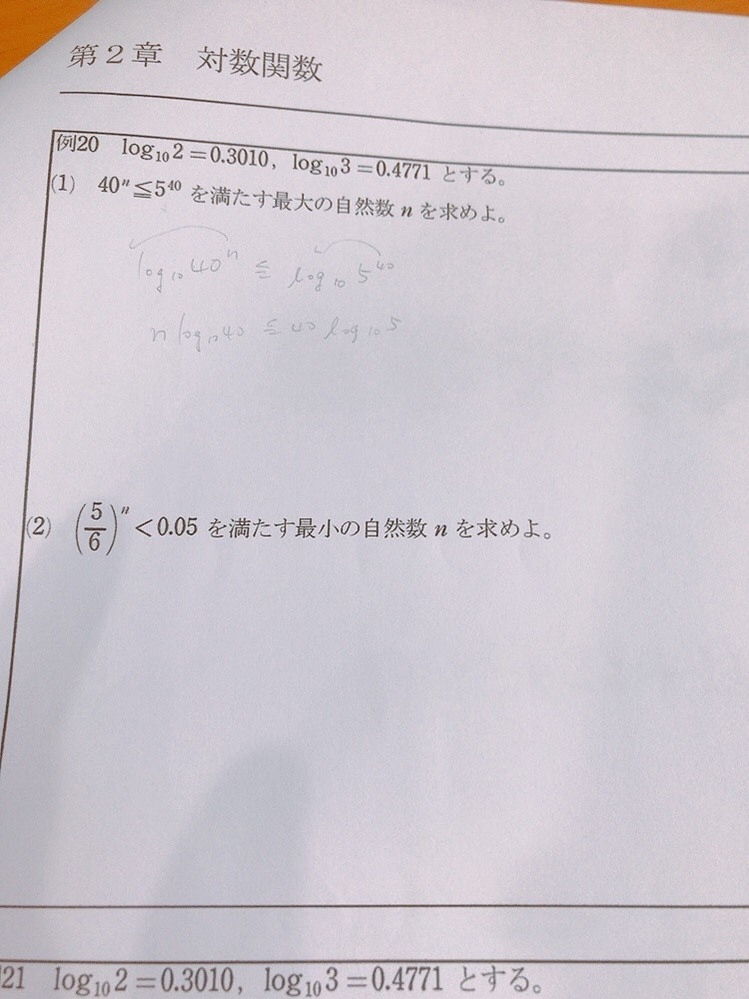 第2章 対数関数
例20 log₁₀2=0.3010, log₁₀3=0.4771 とする。
(1) 40ⁿ≦5⁴⁰ を満たす最大の自然数 n を求めよ。
log₁₀40ⁿ ≦ log₁₀5⁴⁰
n log₁₀40 ≦ 40 log₁₀5
(2) (5/6)ⁿ<0.05 を満たす最小の自然数 n を求めよ。
21 log₁₀2=0.3010, log₁₀3=0.4771 とする。